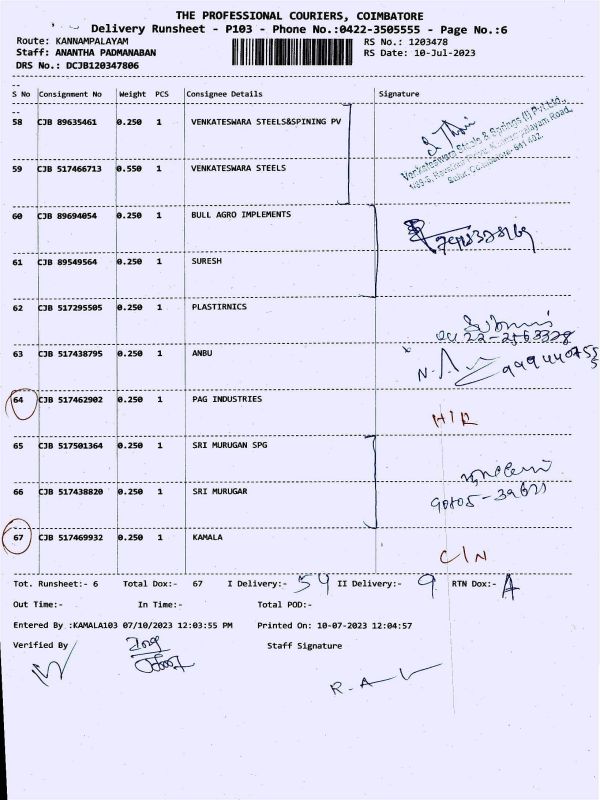 THE PROFESSIONAL COURIERS, COIMBATORE
Delivery Runsheet - P103 - Phone No.:0422-3505555 - Page No.:6
Route: KANNAMPALAYAM
RS No.: 1203478
Staff: ANANTHA PADMANABAN
RS Date: 10-Jul-2023
DRS No.: DCJB120347806
S No Consignment No Weight PCS Consignee Details Signature
58 CJB 89635461 0.250 1 VENKATESWARA STEELS&SPINING PV
Venkateswara Steels & Springs (I) Pvt Ltd.,
59 CJB 517466713 0.550 1 VENKATESWARA STEELS
60 CJB 89694054 0.250 1 BULL AGRO IMPLEMENTS
61 CJB 89549564 0.250 1 SURESH
62 CJB 517295505 0.250 1 PLASTIRNICS
63 CJB 517438795 0.250 1 ANBU
64 CJB 517462902 0.250 1 PAG INDUSTRIES
65 CJB 517501364 0.250 1 SRI MURUGAN SPG
66 CJB 517438820 0.250 1 SRI MURUGAR
67 CJB 517469932 0.250 1 KAMALA
C/N
Tot. Runsheet:- 6 Total Dox:- 67 I Delivery:- II Delivery:- 9 RTN Dox:-
Out Time:- In Time:- Total POD:-
Entered By :KAMALA103 07/10/2023 12:03:55 PM Printed On: 10-07-2023 12:04:57
Verified By Staff Signature